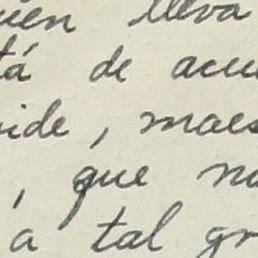 uien lleva
tá de acu
ide, maes
, que no
a tal gr